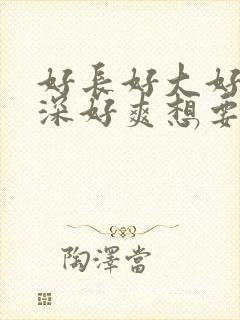 好長好大好
深好爽想要
陶澤當